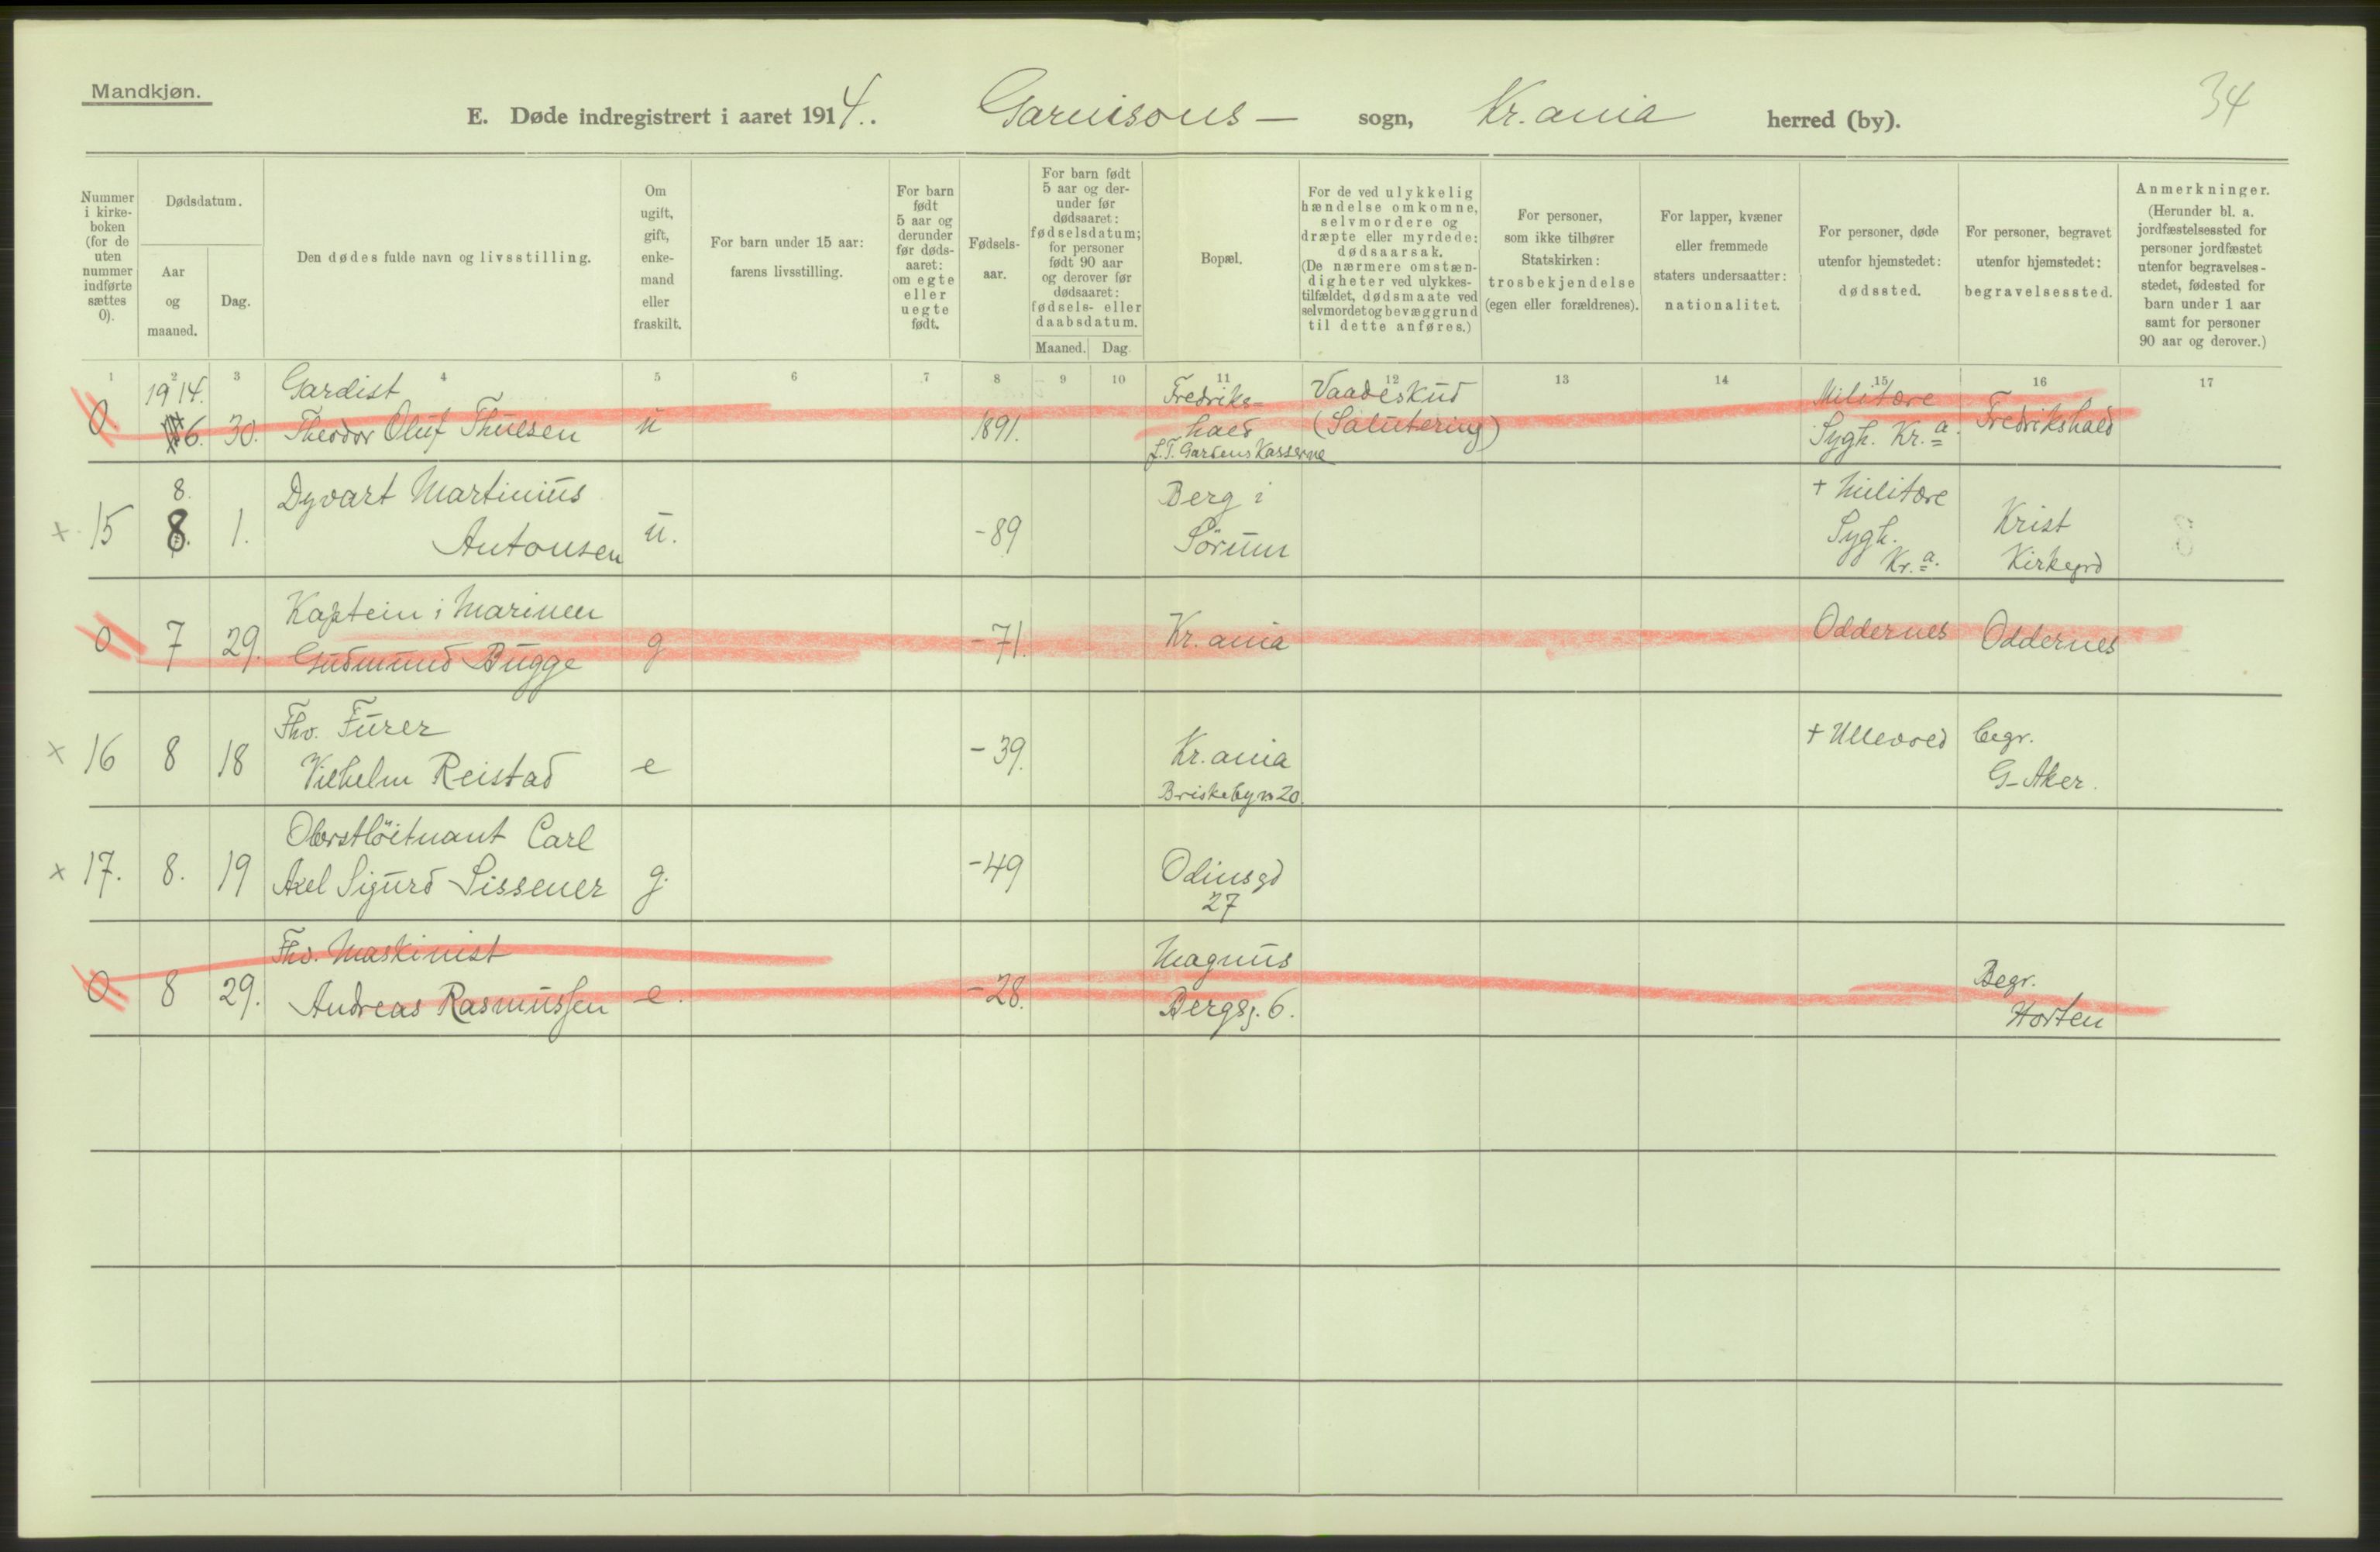 Mandkjøn.
E. Døde indregistrert i aaret 1914. Garnisons - sogn, Kr.ania herred (by).
34
Nummer i kirke- boken (for de uten nummer indførte sættes 0).
Dødsdatum.
Aar og maaned.
Dag.
Den dødes fulde navn og livsstilling.
Om ugift, gift, enke- mand eller fraskilt.
For barn under 15 aar: farens livsstilling.
For barn født 5 aar og derunder før døds- aaret: om egte eller uegte født.
Fødsels- aar.
For barn født 5 aar og der- under før dødsaaret: fødselsdatum; for personer født 90 aar og derover før dødsaaret: fødsels- eller daabsdatum.
Maaned. Dag
Bopæl.
For de ved ulykkelig hændelse omkomne, selvmordere og dræpte eller myrdede: dødsaarsak. (De nærmere omstæn- digheter ved ulykkes- tilfældet, dødsmaate ved selvmordet og bevæggrund til dette anføres.)
For personer, som ikke tilhører Statskirken: trosbekjendelse (egen eller forældrenes).
For lapper, kvæner eller fremmede staters undersaatter: nationalitet.
For personer, døde utenfor hjemstedet: dødssted.
For personer, begravet utenfor hjemstedet: begravelsessted.
Anmerkninger. (Herunder bl. a. jordfæstelsessted for personer jordfæstet utenfor begravelses- stedet, fødested for barn under 1 aar samt for personer 90 aar og derover.)
1 2 3 4 5 6 7 8 9 10 11 12 13 14 15 16 17
1914. Gardist Fredriks= Vaadeskud Militære
0 6. 30. Theodor Oluf Thuesen u 1891. hald (Salutering) Sygh. Kr.a Fredrikshald
Gardens Kasserne
8. Dyvart Martinius Berg i + Militære
x 15 8. 1. Antonsen u. -89 Sørum Sygh. Kr.a. Krist Kirkegrd
Kaptein i Marinen
0 7 29. Gudmund Bugge g -71. Kr.ania Oddernes Oddernes
Fhv. Furer + Ullevold begr.
x 16 8 18 Vilhelm Reistad e -39. Kr.ania G-Aker.
Briskebyv 20.
Oberstløitnant Carl
x 17. 8. 19 Axel Sigurd Sissener g. -49 Odinsgd
27
Fhv. Maskinist Magnus Begr.
0 8 29. Andreas Rasmussen e. -28. Bergsg. 6. Horten